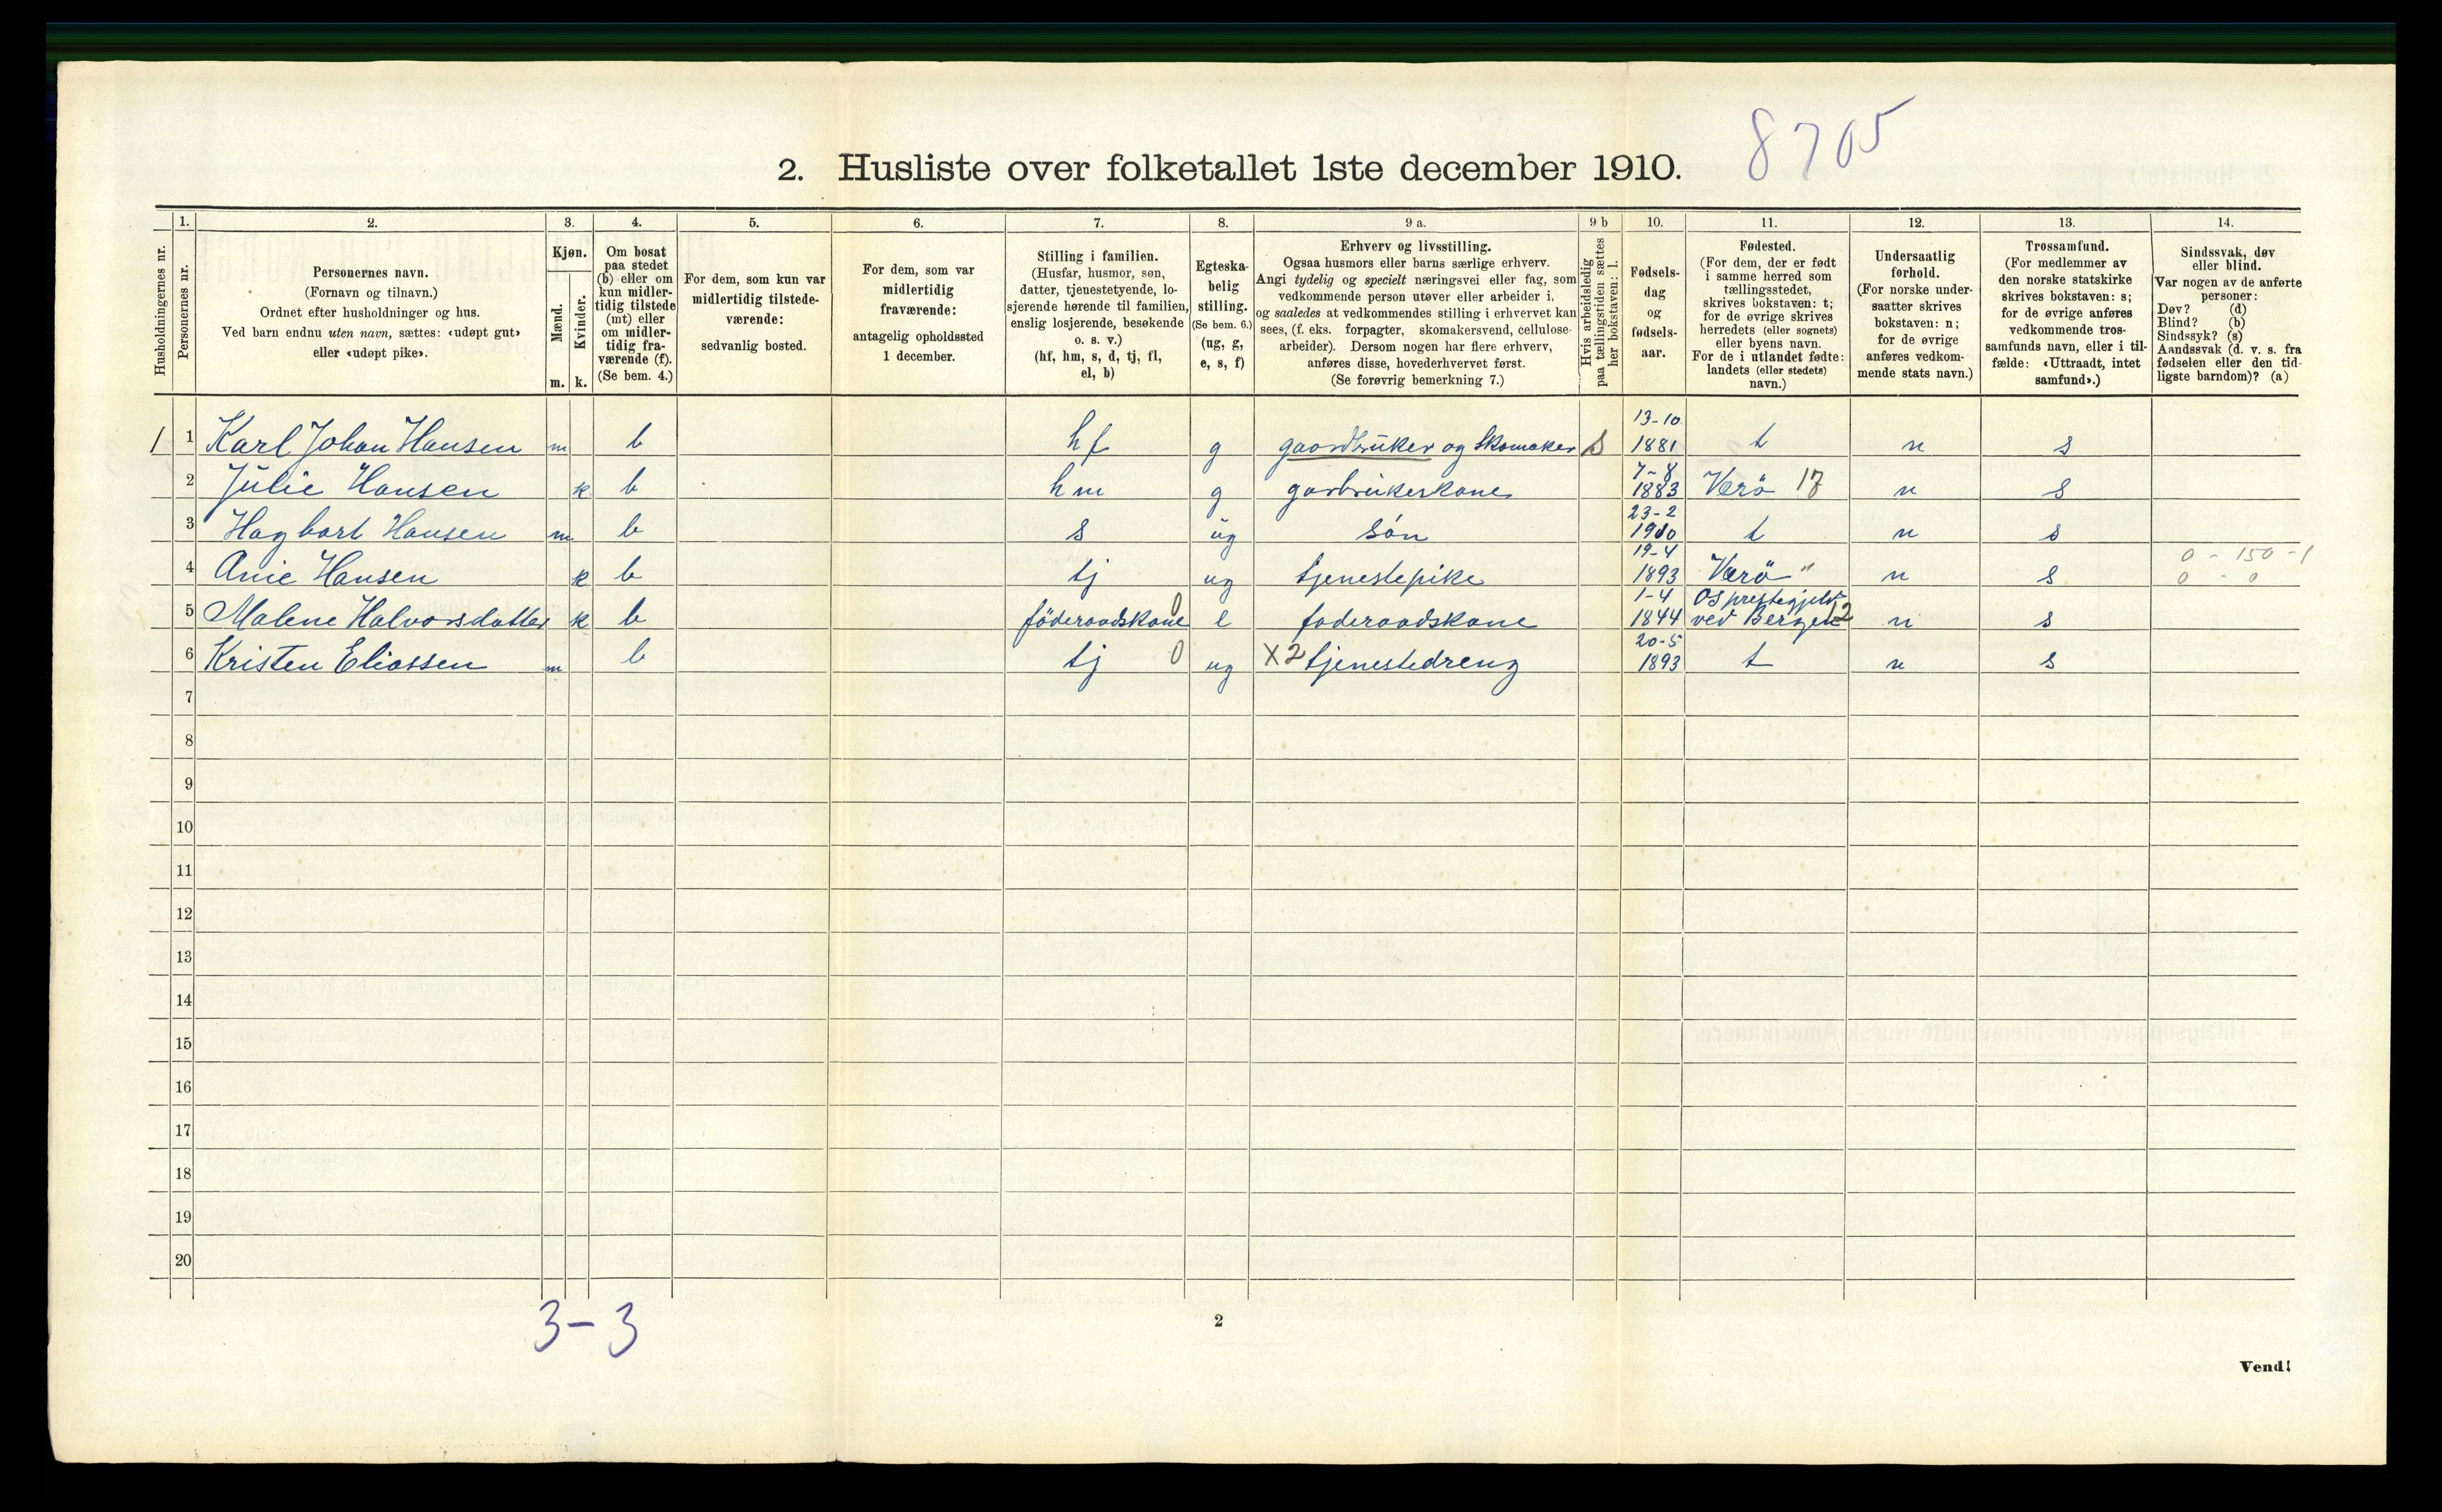 8705
2. Husliste over folketallet 1ste december 1910.
Husholdningernes nr.
1.
Personernes nr.
2.
Personernes navn.
(Fornavn og tilnavn.)
Ordnet efter husholdninger og hus.
Ved barn endnu uten navn, sættes: «udøpt gut»
eller «udøpt pike».
3.
Kjøn.
Mænd.
Kvinder.
m. k.
4.
Om bosat
paa stedet
(b) eller om
kun midler-
tidig tilstede
(mt) eller
om midler-
tidig fra-
værende (f).
(Se bem. 4.)
5.
For dem, som kun var
midlertidig tilstede-
værende:
sedvanlig bosted.
6.
For dem, som var
midlertidig
fraværende:
antagelig opholdssted
1 december.
7.
Stilling i familien.
(Husfar, husmor, søn,
datter, tjenestetyende, lo-
sjerende hørende til familien,
enslig losjerende, besøkende
o. s. v.)
(hf, hm, s, d, tj, fl,
el, b)
8.
Egteska-
belig
stilling.
(Se bem. 6.)
(ug, g,
e, s, f)
9 a.
Erhverv og livsstilling.
Ogsaa husmors eller barns særlige erhverv.
Angi tydelig og specielt næringsvei eller fag, som
vedkommende person utøver eller arbeider i,
og saaledes at vedkommendes stilling i erhvervet kan
sees, (f. eks. forpagter, skomakersvend, cellulose-
arbeider). Dersom nogen har flere erhverv,
anføres disse, hovederhvervet først.
(Se forøvrig bemerkning 7.)
9 b
Hvis arbeidsledig
paa tællingstiden sættes
her bokstaven: l.
10.
Fødsels-
dag
og
fødsels-
aar.
11.
Fødested.
(For dem, der er født
i samme herred som
tællingsstedet,
skrives bokstaven: t;
for de øvrige skrives
herredets (eller sognets)
eller byens navn.
For de i utlandet fødte:
landets (eller stedets)
navn.)
12.
Undersaatlig
forhold.
(For norske under-
saatter skrives
bokstaven: n;
for de øvrige
anføres vedkom-
mende stats navn.)
13.
Trossamfund.
(For medlemmer av
den norske statskirke
skrives bokstaven: s;
for de øvrige anføres
vedkommende tros-
samfunds navn, eller i til-
fælde: «Uttraadt, intet
samfund».)
14.
Sindssvak, døv
eller blind.
Var nogen av de anførte
personer:
Døv? (d)
Blind? (b)
Sindssyk? (s)
Aandssvak (d. v. s. fra
fødselen eller den tid-
ligste barndom)? (a)
1 1 Karl Johan Hansen m b hf g gaardbruker og Skomaker S 13-10 1881 t n s
2 Julie Hansen k b hm g garbrukerkone 7-8 1883 Værö 17 n s
3 Hagbart Hansen m b s ug søn 23-2 1900 t n s
4 Anie Hansen k b tj ug tjenestepike 19-4 1893 Værö " n s 0 - 150 - 1 0 - 0
5 Malene Halvorsdatter k b föderaadskone 0 e foderaadskone 1-4 1844 Os prestegjeld ved Bergen 12 n s
6 Kristen Eliassen m b tj 0 ug X2 tjenestedreng 20-5 1893 t n s
7
8
9
10
11
12
13
14
15
16
17
18
19
20
3-3
2
Vend!